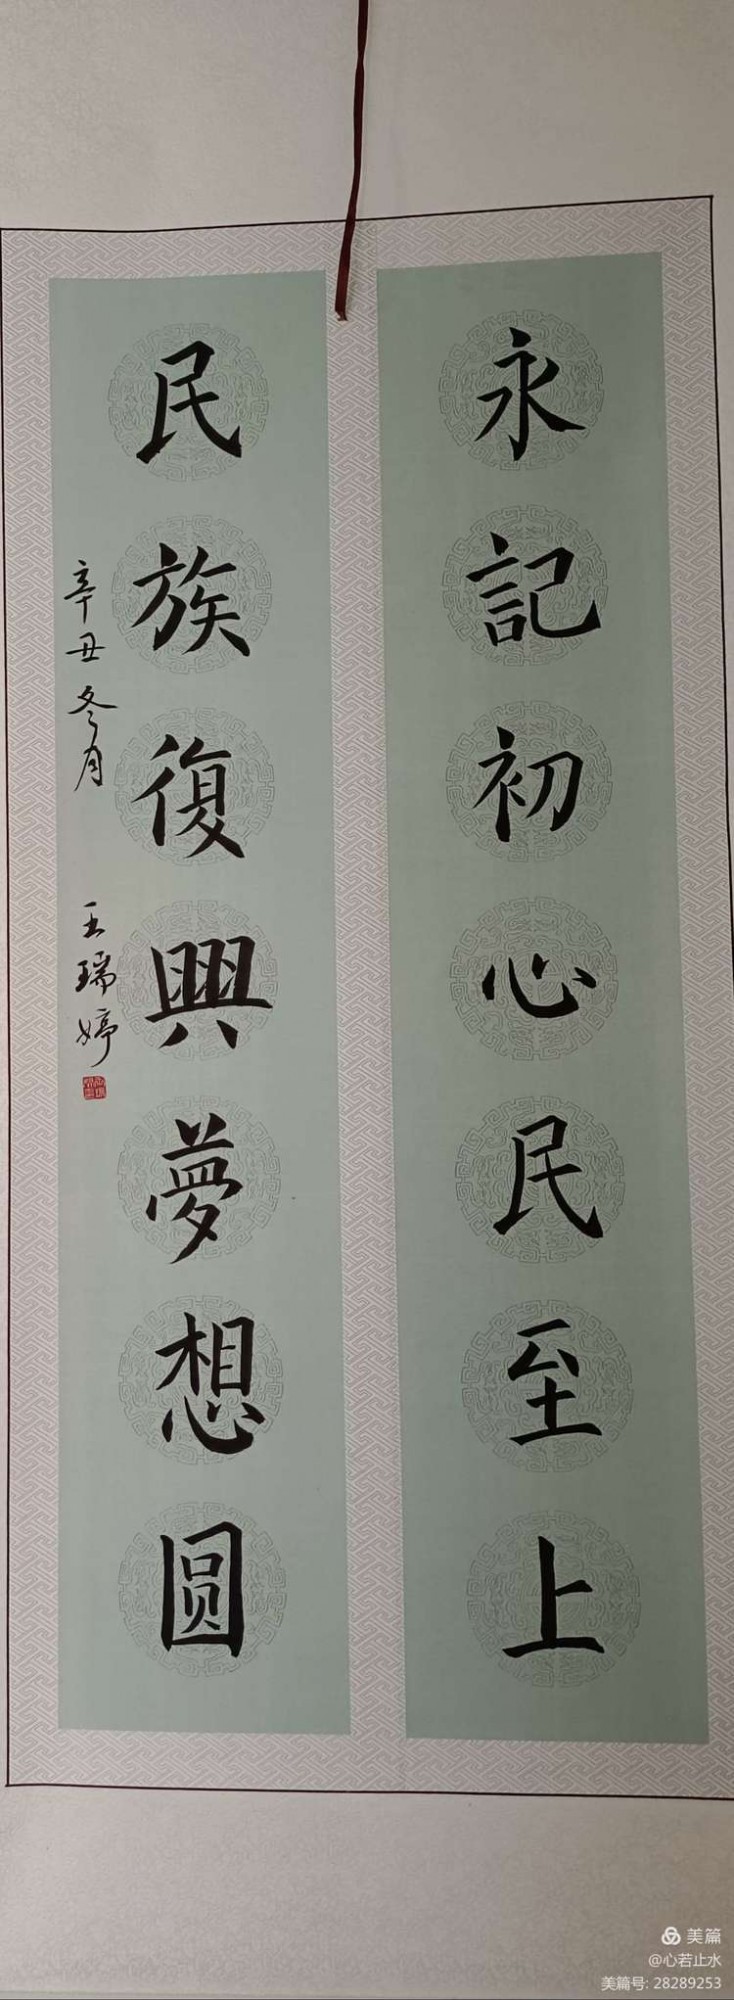 永記初心民至上
民族復興夢想圆
辛丑冬月
王瑞婷
美篇
@心若止水
美篇号: 28289253